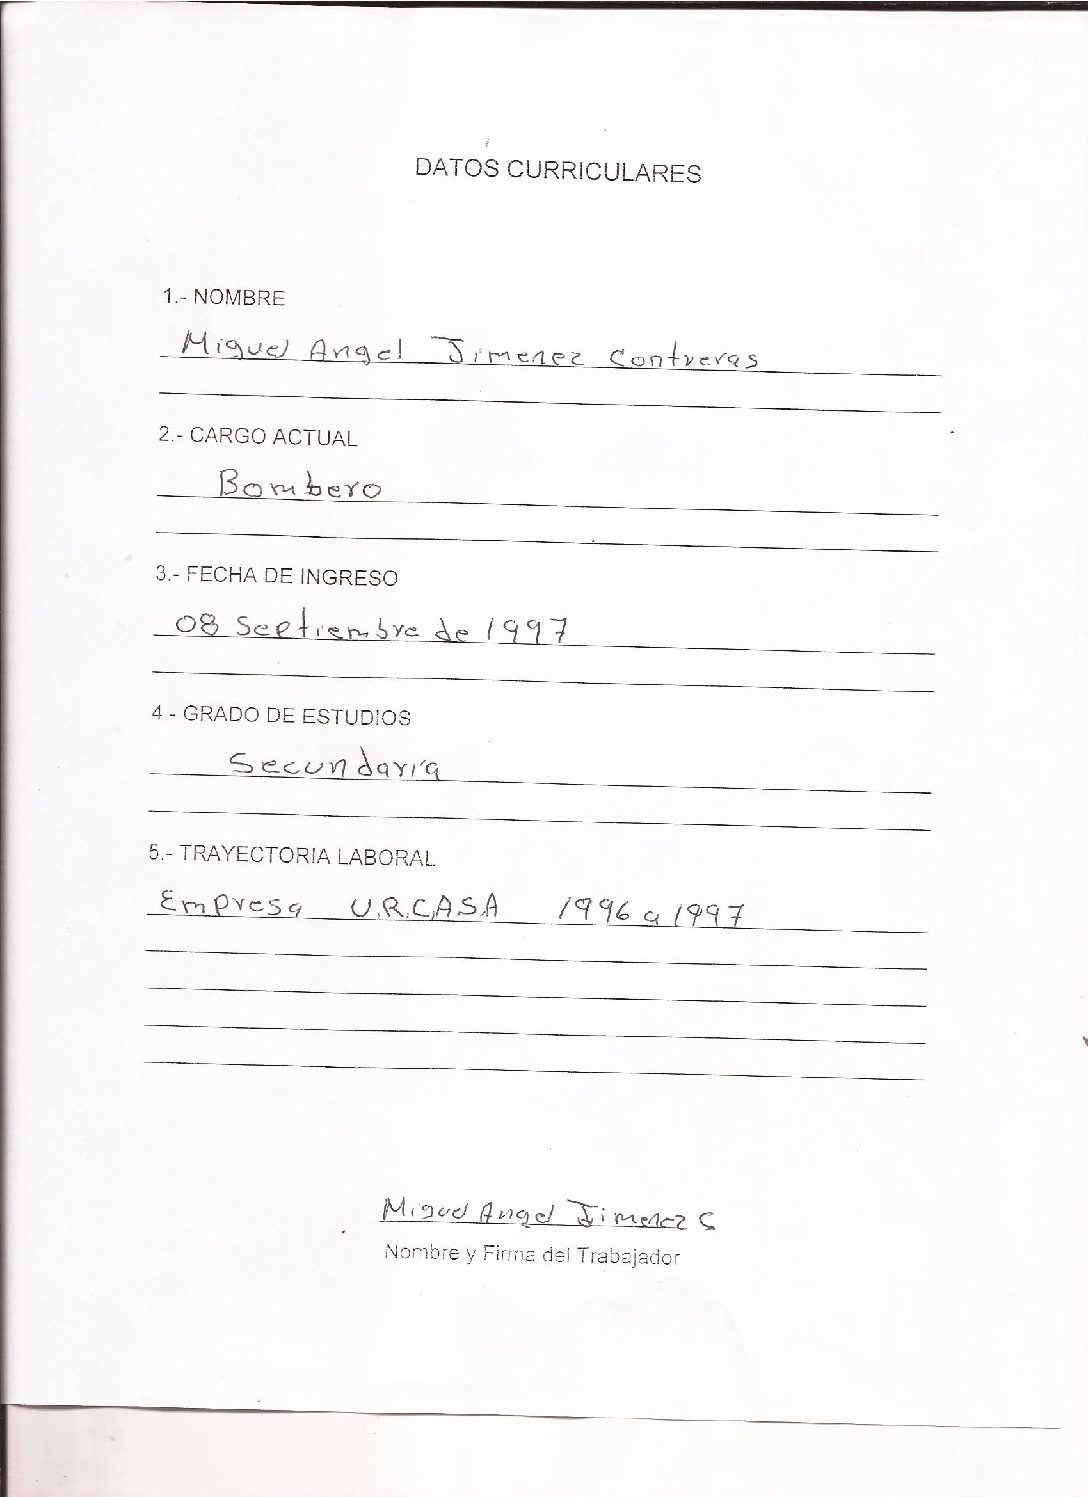 DATOS CURRICULARES
1.- NOMBRE
Miguel Angel Jimenez Contreras
2.- CARGO ACTUAL
Bombero
3.- FECHA DE INGRESO
08 Septiembre de 1997
4 - GRADO DE ESTUDIOS
Secundaria
5.- TRAYECTORIA LABORAL
Empresa U.R.C.A.S.A 1996 a 1997
Miguel Angel Jimenez C
Nombre y Firma del Trabajador